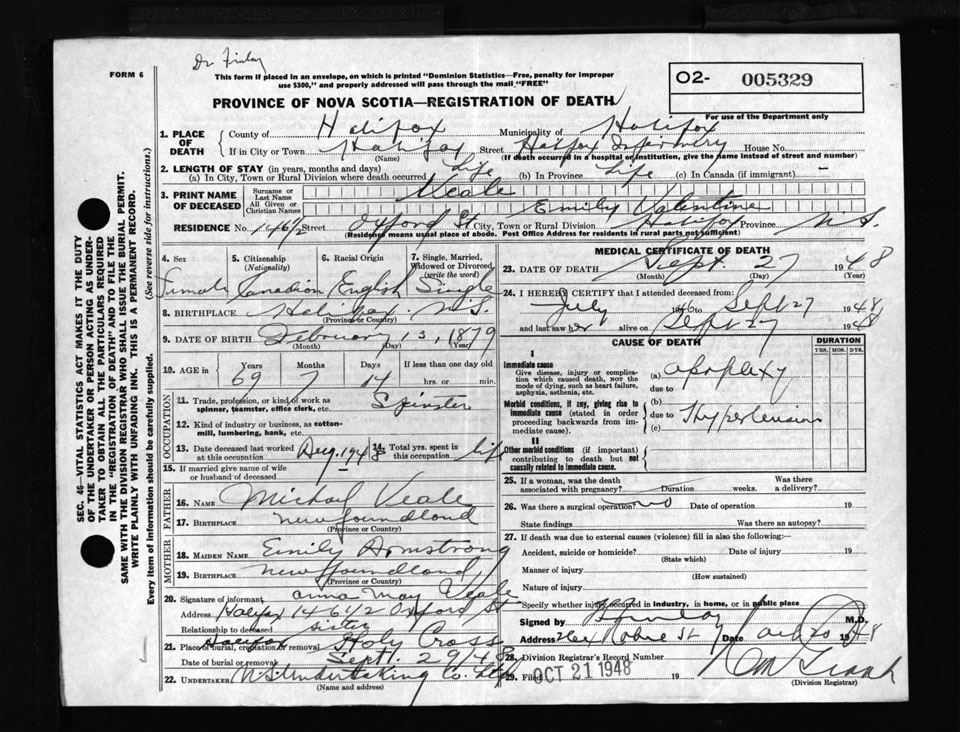 Dr Finlay
FORM 6
This form if placed in an envelope, on which is printed "Dominion Statistics—Free, penalty for improper
use $300," and properly addressed will pass through the mail "FREE"
O2- 005329
For use of the Department only
PROVINCE OF NOVA SCOTIA—REGISTRATION OF DEATH
1. PLACE OF DEATH
County of Halifax Municipality of Halifax
If in City or Town Halifax Street Halifax Infirmary House No.
(Name) (If death occurred in a hospital or institution, give the name instead of street and number)
2. LENGTH OF STAY (in years, months and days)
(a) In City, Town or Rural Division where death occurred Life (b) In Province Life (c) In Canada (if immigrant) —
3. PRINT NAME OF DECEASED
Surname or Last Name Veale
All Given or Christian Names Emily Valentine
RESIDENCE No. 146½ Street Oxford St City, Town or Rural Division Halifax Province N.S.
(Residence means usual place of abode. Post Office Address for residents in rural parts not sufficient)
4. Sex
Female
5. Citizenship
(Nationality)
Canadian
6. Racial Origin
English
7. Single, Married, Widowed or Divorced
(write the word)
Single
8. BIRTHPLACE Halifax N.S.
(Province or Country)
9. DATE OF BIRTH February 13, 1879
(Month) (Day) (Year)
10. AGE in
Years Months Days If less than one day old
69 7 14 hrs. or min.
OCCUPATION
11. Trade, profession or kind of work as
spinner, teamster, office clerk, etc. Spinster
12. Kind of industry or business, as cotton-
mill, lumbering, bank, etc.
13. Date deceased last worked
at this occupation Aug. 1948
14. Total yrs. spent in
this occupation life
15. If married give name of wife
or husband of deceased
FATHER
16. NAME Michael Veale
17. BIRTHPLACE Newfoundland
(Province or Country)
MOTHER
18. MAIDEN NAME Emily Armstrong
19. BIRTHPLACE Newfoundland
(Province or Country)
20. Signature of informant Anna May Veale
Address Halifax 146 1/2 Oxford St
Relationship to deceased sister
21. Place of burial, cremation or removal Halifax Holy Cross
Date of burial or removal Sept. 29 1948
22. UNDERTAKER N.S. Undertaking Co. Ltd
(Name and address)
MEDICAL CERTIFICATE OF DEATH
23. DATE OF DEATH Sept. 27 1948
(Month) (Day) (Year)
24. I HEREBY CERTIFY that I attended deceased from:
July 1946 to Sept 27 1948
and last saw her alive on Sept 27 1948
CAUSE OF DEATH
DURATION
YRS. MOS. DYS.
I
Immediate cause
Give disease, injury or complica-
tion which caused death, NOT the
mode of dying, such as heart failure,
asphyxia, asthenia, etc.
(a) apoplexy
due to
Morbid conditions, if any, giving rise to
immediate cause (stated in order
proceeding backwards from im-
mediate cause).
(b)
due to Hypertension
(c)
II
Other morbid conditions (if important)
contributing to death but not
causally related to immediate cause.
25. If a woman, was the death Was there
associated with pregnancy? Duration weeks. a delivery?
26. Was there a surgical operation? no Date of operation 19
State findings Was there an autopsy?
27. If death was due to external causes (violence) fill in also the following:—
Accident, suicide or homicide? Date of injury 19
(State which)
Manner of injury
(How sustained)
Nature of injury
Specify whether injury occurred in industry, in home, or in public place
Signed by M.D.
Address St Date Oct 20 1948
28. Division Registrar's Record Number
29. Filed OCT 21 1948 19
(Division Registrar)
SEC. 46—VITAL STATISTICS ACT MAKES IT THE DUTY
OF THE UNDERTAKER OR PERSON ACTING AS UNDER-
TAKER TO OBTAIN ALL THE PARTICULARS REQUIRED
IN THE "REGISTRATION OF DEATH" AND TO FILE THE
SAME WITH THE DIVISION REGISTRAR WHO SHALL ISSUE THE BURIAL PERMIT.
WRITE PLAINLY WITH UNFADING INK. THIS IS A PERMANENT RECORD.
Every item of information should be carefully supplied. (See reverse side for instructions.)